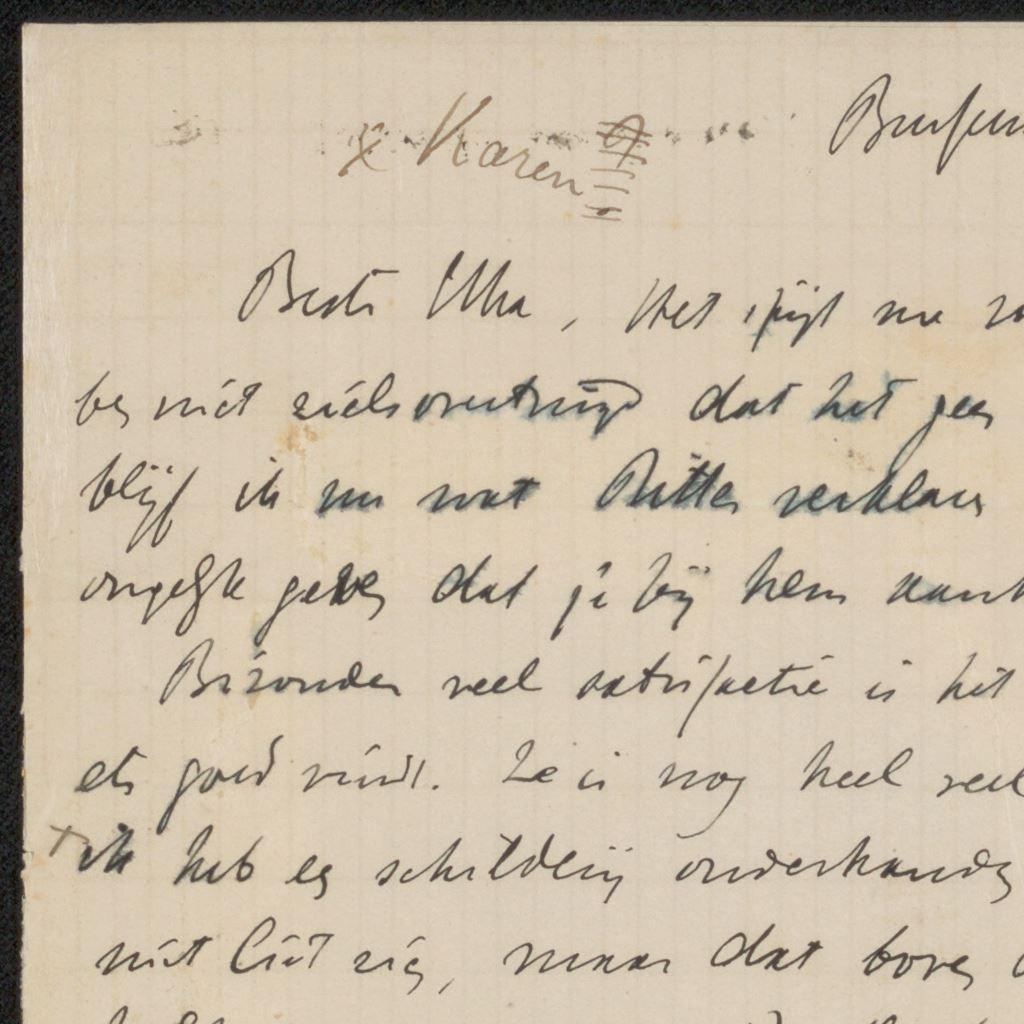 x Karen
Bussum
Beste Ulka, Het spijt me zo
ben niet zielsovertuigd dat het geen
blijf ik nu wat Ritter verklaart
ongelijk geven dat je bij hem aank
Bizonder veel satisfactie is het
ets goed vindt. Ze is nog heel veel
ik heb een schilderij onderhanden
niet liet zien, maar dat boven